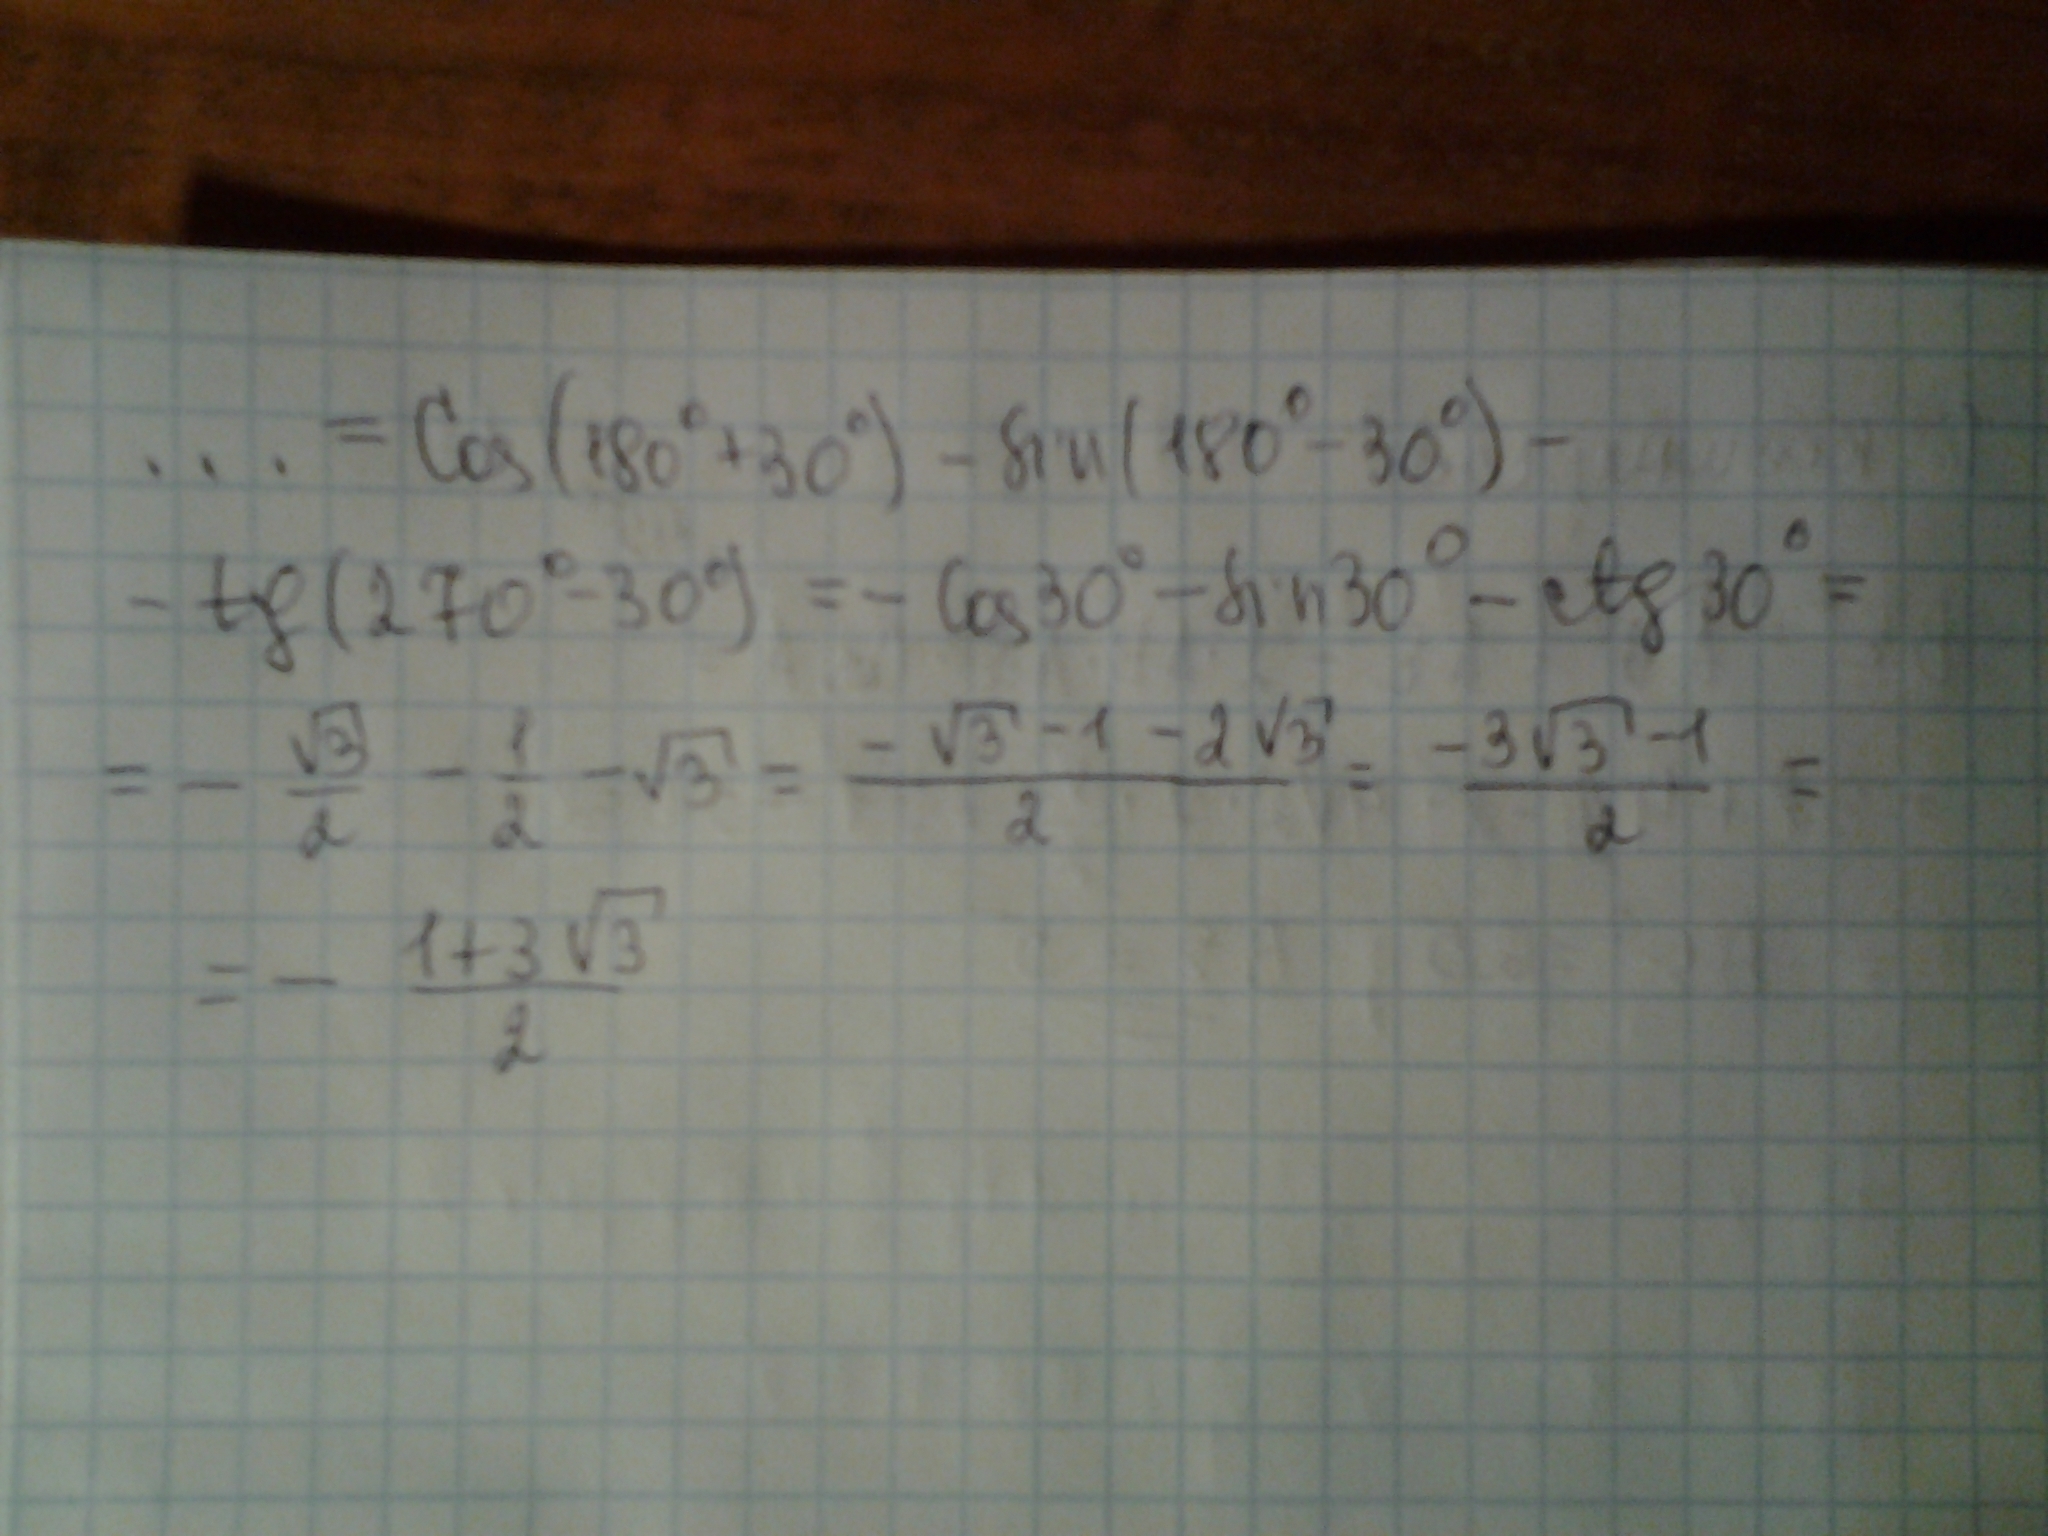 ... = Cos(180°+30°) - sin(180°-30°) -
- tg(270°-30°) = - Cos30° - sin30° - ctg30° =
= - √3/2 - 1/2 - √3 = (-√3 - 1 - 2√3)/2 = (-3√3 - 1)/2 =
= - (1+3√3)/2